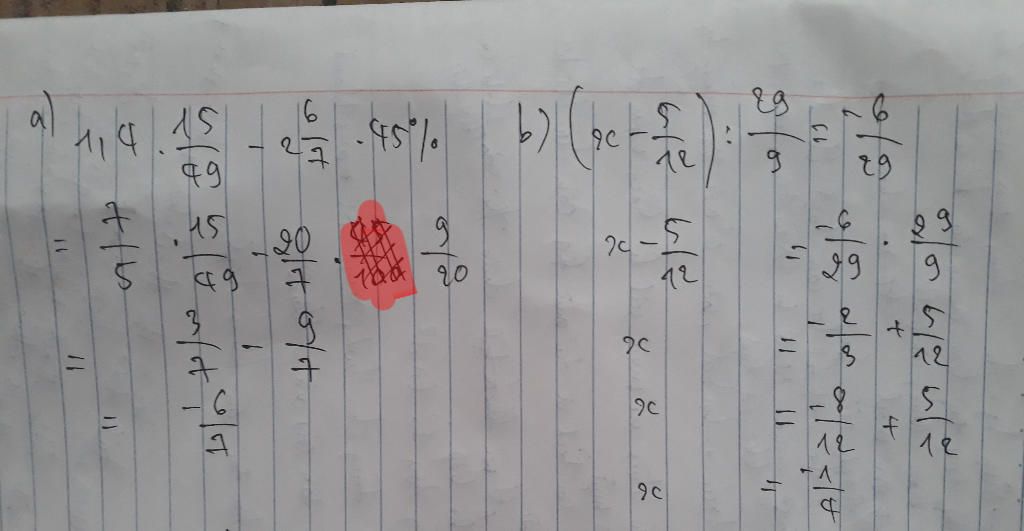 a) 1,4 . 15/49 - 2 6/7 . 45%
= 7/5 . 15/49 - 20/7 . 9/20
= 3/7 - 9/7
= -6/7
b) (x - 5/12) : 29/9 = -6/29
x - 5/12 = -6/29 . 29/9
x = -2/3 + 5/12
x = -8/12 + 5/12
x = -1/4